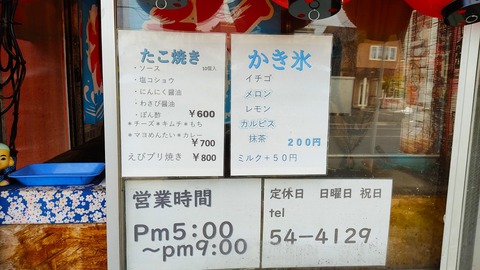 たこ焼き
・ソース 10個入
・塩コショウ
・にんにく醤油
・わさび醤油
・ぽん酢 ¥600
＊チーズ＊キムチ＊もち
＊マヨめんたい＊カレー
¥700
えびプリ焼き ¥800
かき氷
イチゴ
メロン
レモン
カルピス
抹茶 200円
ミルク＋50円
営業時間
Pm5:00
～pm9:00
定休日 日曜日 祝日
tel
54－4129